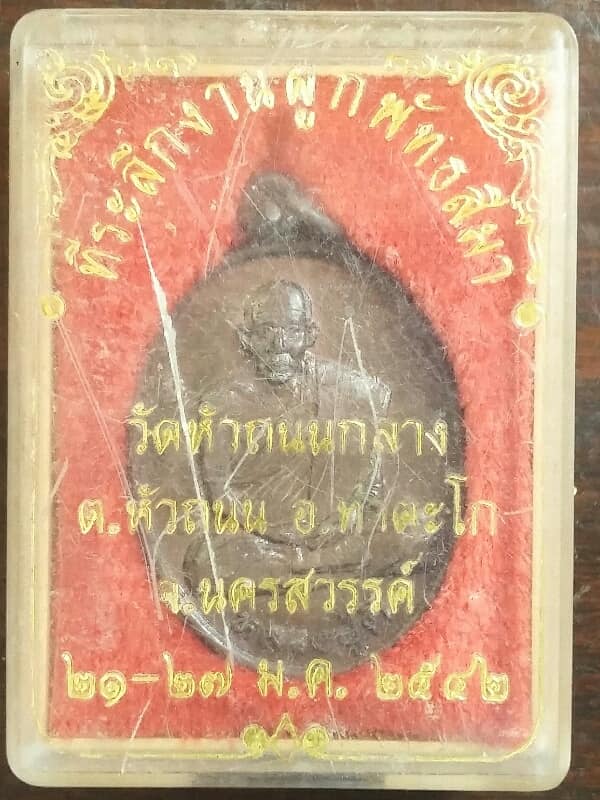 ที่ระลึกงานผูกพัทธสีมา
วัดหัวถนนกลาง
ต.หัวถนน อ.ท่าตะโก
จ.นครสวรรค์
๒๑-๒๗ ม.ค. ๒๕๔๒